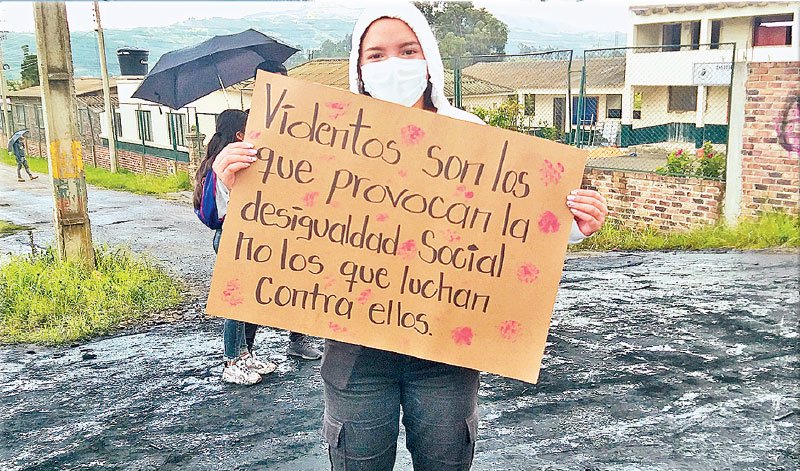 Violentos son los
que provocan la
desigualdad Social
no los que luchan
Contra ellos.